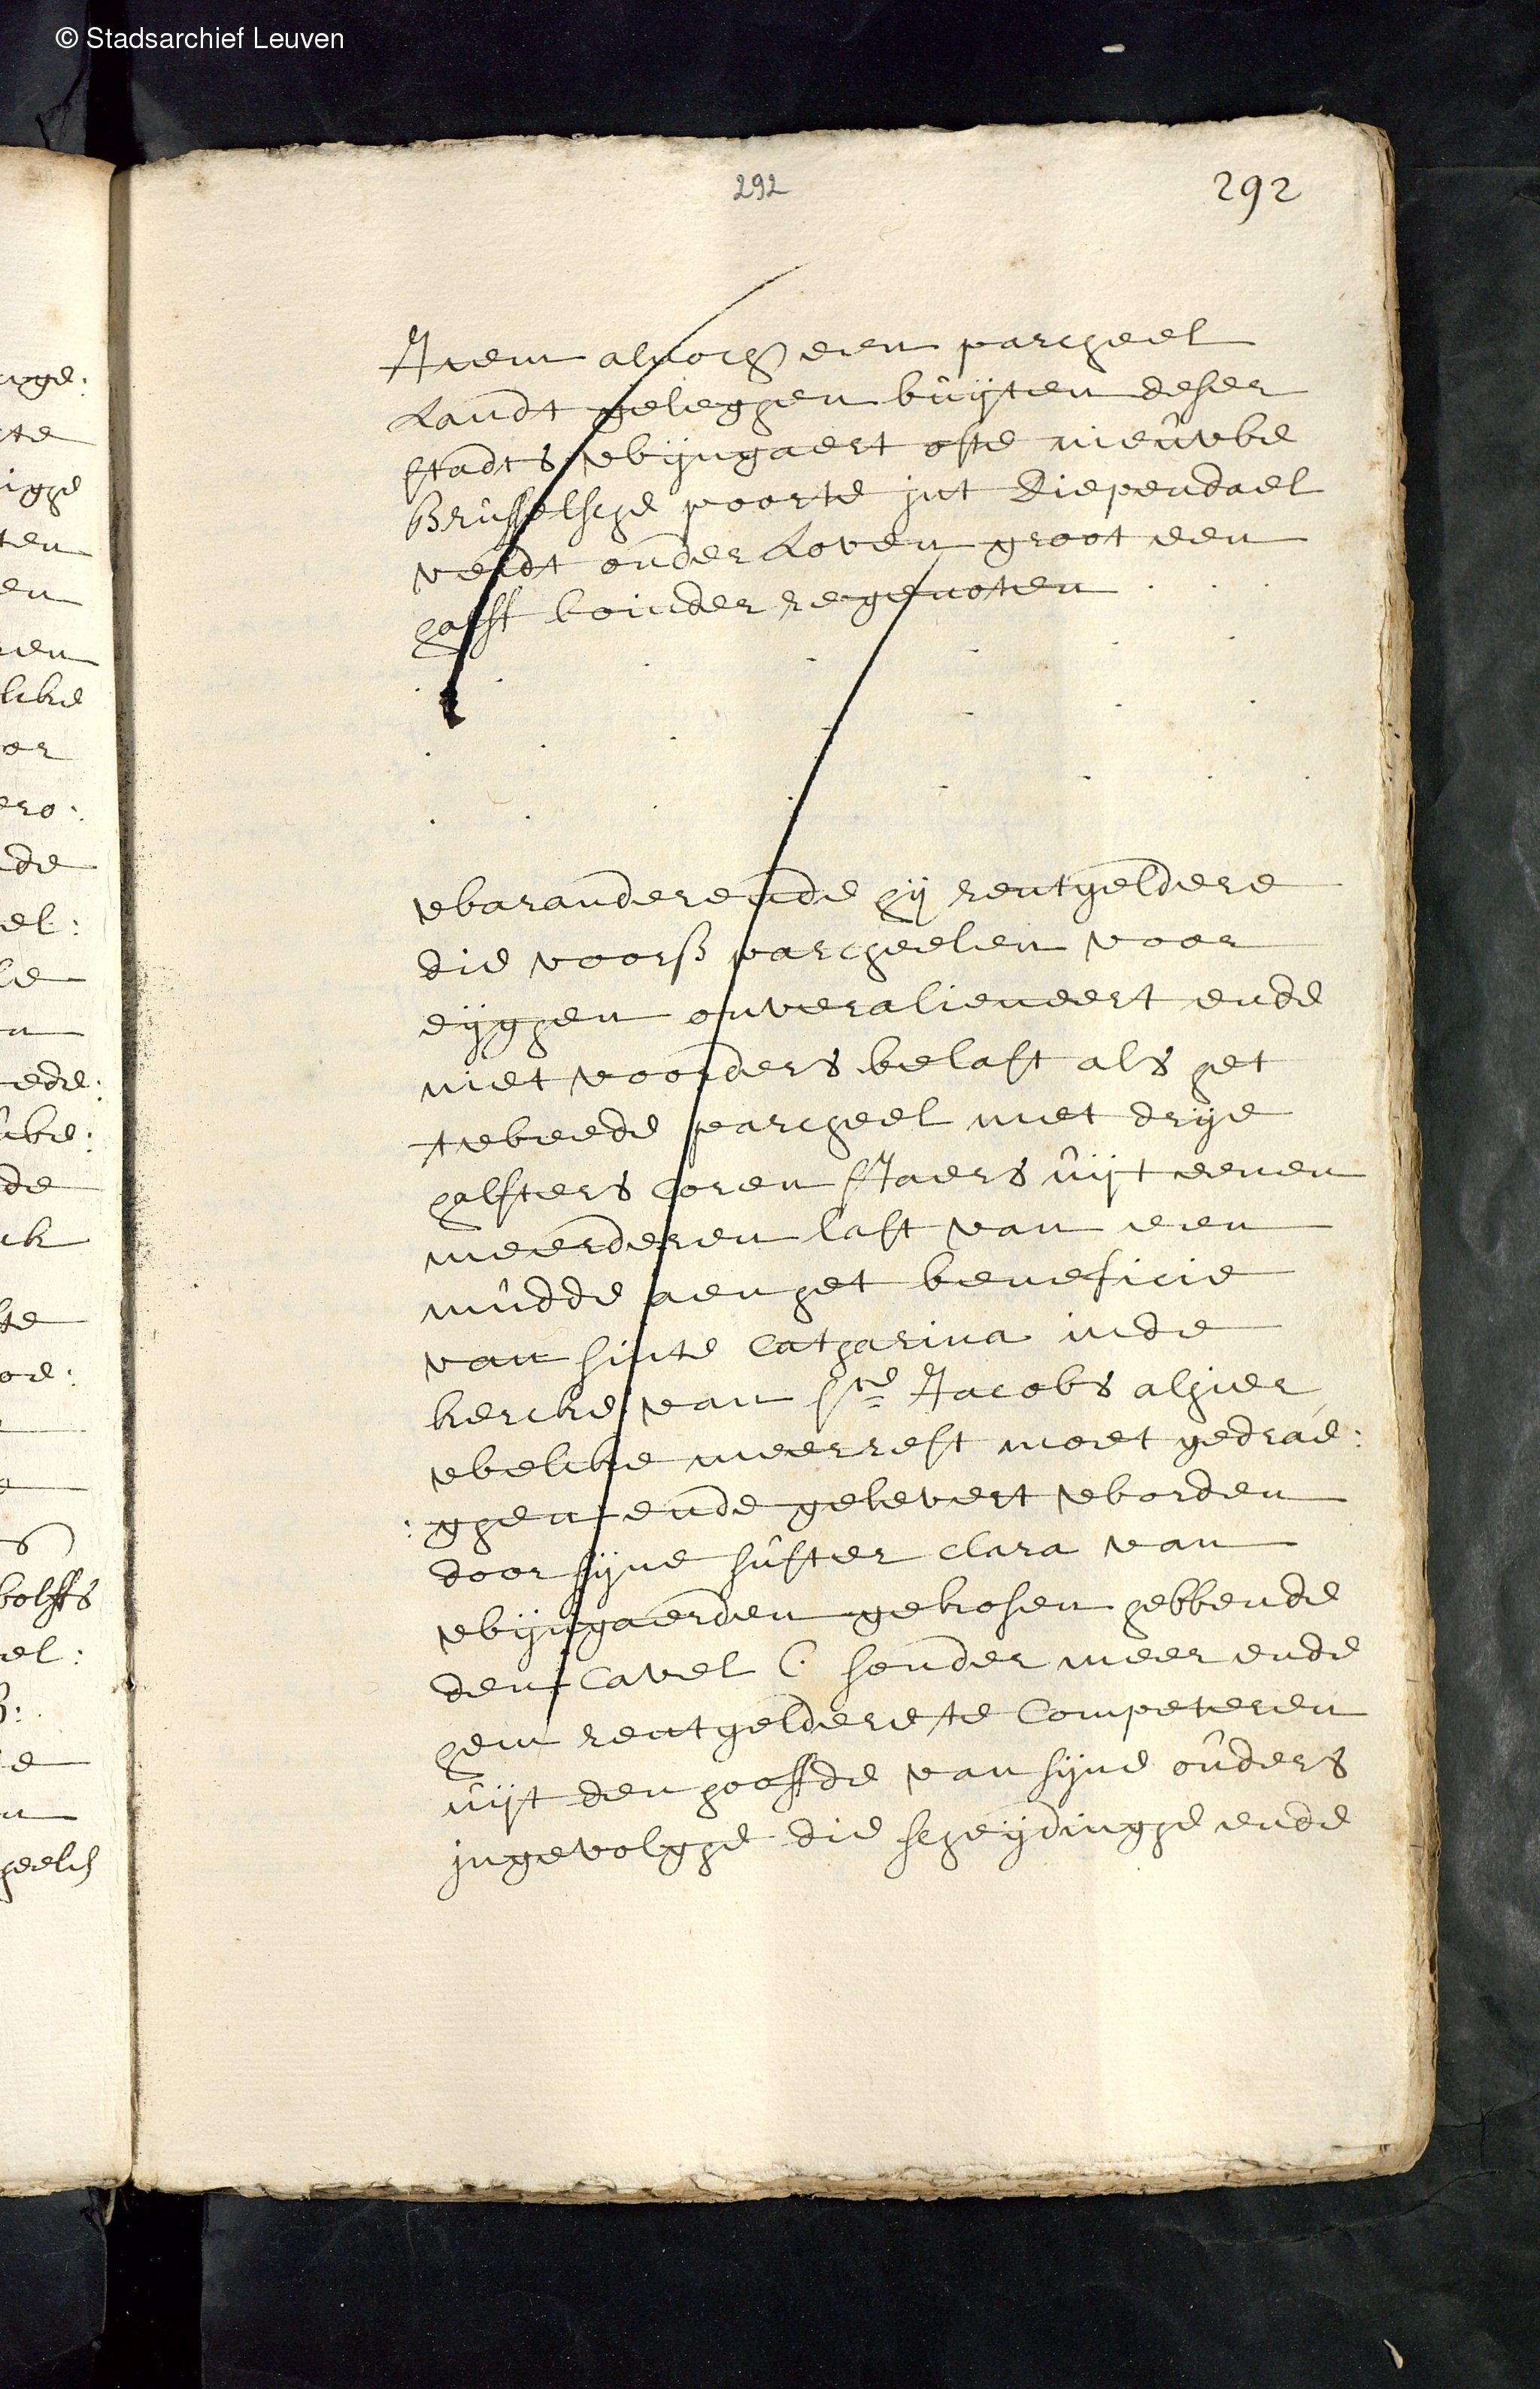 © Stadsarchief Leuven
292
292
Item alnoch een parcheel
Landt geleghen buijten deser
stadts wijngaert ofte nieuwe
Brusselsche poorte int Diependael
veldt onder Loven groot een
halff boinder regenoten
waranderende hij rentgeldere
die voors parcheelen voor
eijghen onveralieneert ende
niet voorders belast als het
tweede parcheel met drije
halsters coren sJaers uijt eenen
meerderen last van een
mudde aen het beneficie
van sinte Catharina inde
kercke van ste Jacobs alhier
welcke meerrest moet gedrae:
:ghen ende gelevert worden
door sijne suster clara van
wijngaerden gekosen hebbende
den Cavel C. sonder meer ende
hem rentgeldere te Competeren
uijt den hooffde van sijne ouders
ingevolghe die scheijdinghe ende